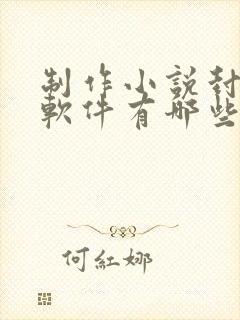 制作小說封
軟件有哪些
何紅娜